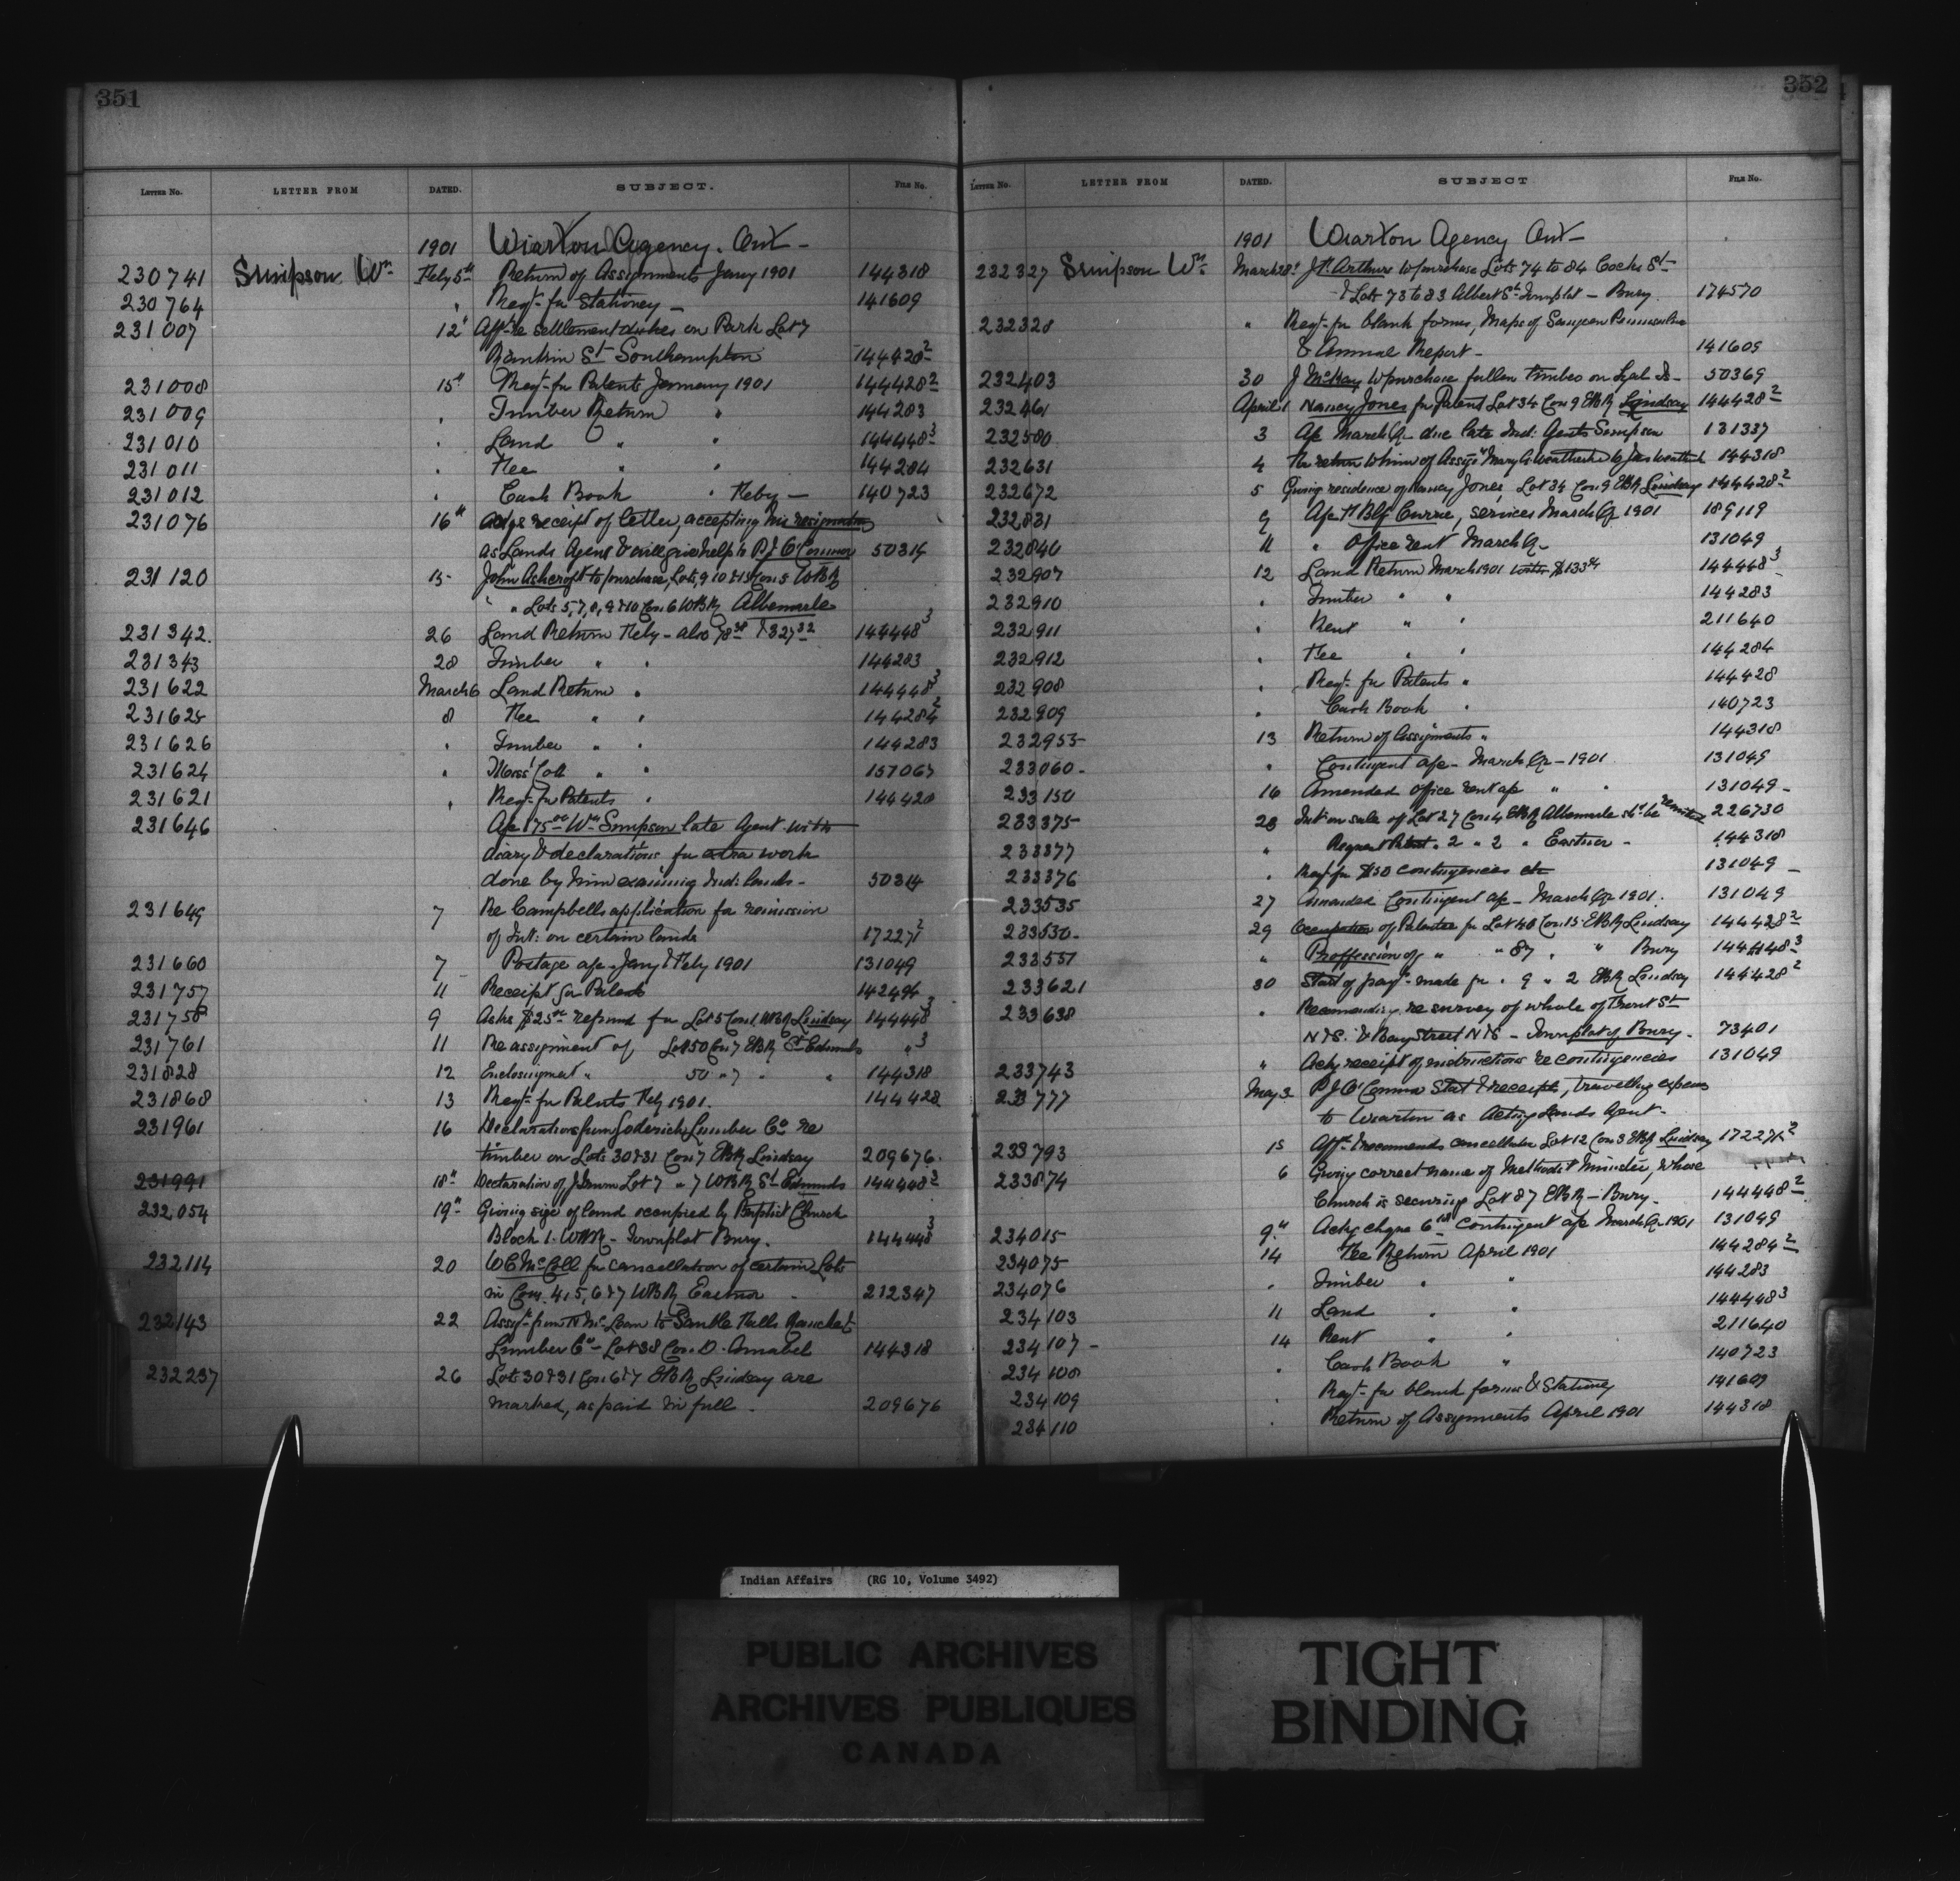 351
LETTER NO. LETTER FROM DATED. SUBJECT. FILE NO.
1901 Wiarton Agency. Ont-
230741 Simpson Wm Feby 5th Return of Assignments Jany 1901 144318
230764 " Reqt- for Stationery - 141609
231007 12" Afft re settlement duties on Park Lot 7
Rankin St Southampton 144428 2
231008 15" Reqt- for Patents January 1901 144428 2
231009 " Timber Return " 144283
231010 " Land " " 144448 3
231011 " Fee " " 144284
231012 " Cash Book " Feby - 140723
231076 16" Ackge receipt of letter, accepting his resignation
as Lands Agent & will give help to P J O'Connor 50314
231120 15- John Ashcroft to purchase, Lots 9 10 & 13 Con 5 WBR
" " Lots 5, 7, 8, 9 & 10 Con 6 WBR Albemarle
231342. 26 Land Return Feby - also 78 38 & 327 32 144448 3
231343 28 Timber " " 144283
231622 March 6 Land Return " 144448 3
231625 8 Fee " " 144284 2
231626 " Timber " " 144283
231624 " Coll " " 157067
231621 " Reqt- for Patents " 144428
231646 A/c 175 00 Wm Simpson late Agent with
diary & declarations for extra work
done by him examining Ind: lands- 50314
231649 7 Re Campbells application for remission
of Int: on certain lands 172271 2
231660 7 Postage a/c Jany & Feby 1901 131049
231757 11 Receipt for Patents 142494
231758 9 Asks $25 00 refund for Lot 5 Con 1 WBR Lindsay 144448 3
231761 11 Re assignment of Lot 50 Con 7 EBR St Edmunds " 3
231828 12 " 50 " 7 " " 144318
231868 13 Reqt- for Patents Feby 1901. 144428
231961 16 Declarations from Goderich Lumber Co re
timber on Lots 30 & 31 Con 7 EBR Lindsay 209676.
231991 18" Declaration of J Lot 7 " 7 WBR St Edmunds 144448 3
232054 19" Giving size of land occupied by Baptist Church
Block 1. WBR - Townplot Bury. 144448 3
232114 20 W C McColl for cancellation of certain Lots
in Con. 4, 5, 6 & 7 WBR Eastnor 212347
232143 22 Assgt- from N McLean to Sauble Falls
Lumber Co - Lot 38 Con. D. Amabel 144318
232237 26 Lots 30 & 31 Con 6 & 7 EBR Lindsay are
marked, as paid in full. 209676
352
LETTER NO. LETTER FROM DATED. SUBJECT FILE NO.
1901 Wiarton Agency Ont-
232327 Simpson Wm March 28" Jn Arthurs to purchase Lots 74 to 84 Cocks St-
& Lots 73 to 83 Albert St Townplot - Bury. 174570
232328 " Reqt- for blank forms, Maps of Saugeen Peninsula
& Annual Report- 141609
232403 30 J McKay to purchase fallen timber on Is- 50369
232461 April 1 Nancy Jones for Patent Lot 34 Con 9 EBR Lindsay 144428 2
232580 3 A/c March Qr due late Ind: Agents Simpson 131337
232631 4 For return to him of Assgt Mary A Weatherhead to Jas 144318
232672 5 Giving residence of Nancy Jones, Lot 34 Con 9 EBR Lindsay 144428 2
232831 9 A/c Currie, services March Qr 1901 189119
232840 11 " Office rent March Qr- 131049
232907 12 Land Return March 1901 144448 3
232910 " Timber " " 144283
232911 " Rent " " 211640
232912 " Fee " " 144284
232908 " Reqt- for Patents " 144428
232909 " Cash Book " 140723
232955 13 Return of Assignments " 144318
233060- " Contingent a/c - March Qr - 1901 131049
233150 16 Amended office rent a/c " " 131049-
233375 23 Int: on sale of Lot 27 Con 4 EBR Albemarle shd be remitted 226730
233377 " Request Patent " 2 " 2 " Eastnor - 144318
233376 " Reqt for $50 contingencies etc 131049 -
233535 27 Amended Contingent a/c - March Qr 1901. 131049
233530- 29 Occupation of Patentee for Lot 40 Con 15 EBR Lindsay 144428 2
233531 " Proffession of " " 87 " " Bury 144448 3
233621 30 Statt of payt- made for " 9 " 2 EBR Lindsay 144428 2
233638 " Recomending re survey of whole of Front St
N & S. & Bay Street N & S - Townplot of Bury. 73401
233743 " Ackg receipt of instructions re contingencies 131049
233777 May 3 P J O'Connor Stat & receipts, travelling expenses
to Wiarton as Acting Lands Agent-
233793 15 Afft- & recommends cancellation Lot 12 Con 3 EBR Lindsay 172271 2
233874 6 Giving correct name of Methodist Minister, whose
Church is securing Lot 87 EBR - Bury. 144448 2
234015 9" Ackg chqne Contingent a/c March Qr 1901 131049
234075 14 Fee Return April 1901 144284 2
234076 " Timber " " 144283
234103 11 Land " " 144448 3
234107 - 14 Rent " " 211640
234108 " Cash Book " 140723
234109 " Reqt- for blank forms & Stationery 141609
234110 " Return of Assignments April 1901 144318
Indian Affairs (RG 10, Volume 3492)
PUBLIC ARCHIVES
ARCHIVES PUBLIQUES
CANADA
TIGHT
BINDING